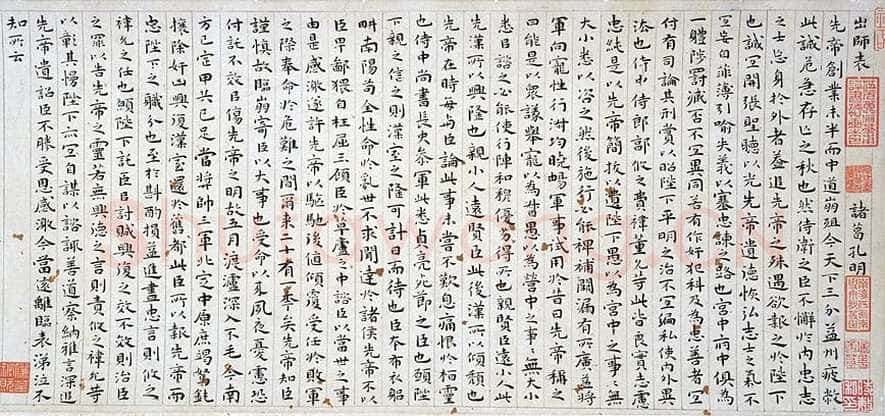 出師表 諸葛孔明
先帝創業未半而中道崩殂今天下三分益州疲敝
此誠危急存亡之秋也然侍衛之臣不懈於內忠志
之士忘身於外者蓋追先帝之殊遇欲報之於陛下
也誠宜開張聖聽以光先帝遺德恢弘志士之氣不
宜妄自菲薄引喻失義以塞忠諫之路也宮中府中俱為
一體陟罰臧否不宜異同若有作奸犯科及為忠善者宜
付有司論其刑賞以昭陛下平明之治不宜偏私使內外異
法也侍中侍郎郭攸之費禕董允等此皆良實志慮
忠純是以先帝簡拔以遺陛下愚以為宮中之事事無
大小悉以咨之然後施行必能裨補闕漏有所廣益將
軍向寵性行淑均曉暢軍事試用於昔日先帝稱之
曰能是以眾議舉寵以為督愚以為營中之事事無大小
悉以諮之必能使行陣和穆優劣得所也親賢臣遠小人此
先漢所以興隆也親小人遠賢臣此後漢所以傾頹也
先帝在時每與臣論此事未嘗不歎息痛恨於桓靈
也侍中尚書長史參軍此悉貞亮死節之臣也願陛
下親之信之則漢室之隆可計日而待也臣本布衣躬
畊南陽苟全性命於亂世不求聞達於諸侯先帝不以
臣卑鄙猥自枉屈三顧臣於草廬之中諮臣以當世之事
由是感激遂許先帝以驅馳後值傾覆受任於敗軍
之際奉命於危難之間爾來二十有一年矣先帝知臣
謹慎故臨崩寄臣以大事也受命以來夙夜憂慮恐
付託不效以傷先帝之明故五月渡瀘深入不毛今南
方已定甲兵已足當獎帥三軍北定中原庶竭駑鈍
攘除奸凶興復漢室還於舊都此臣所以報先帝而
忠陛下之職分也至於斟酌損益進盡忠言則攸之
禕允之任也願陛下託臣以討賊興復之效不效則治臣
之罪以告先帝之靈若無興德之言則責攸之禕允等
以彰其慢陛下亦宜自謀以諮諏善道察納雅言深追
先帝遺詔臣不勝受恩感激今當遠離臨表涕泣不
知所云